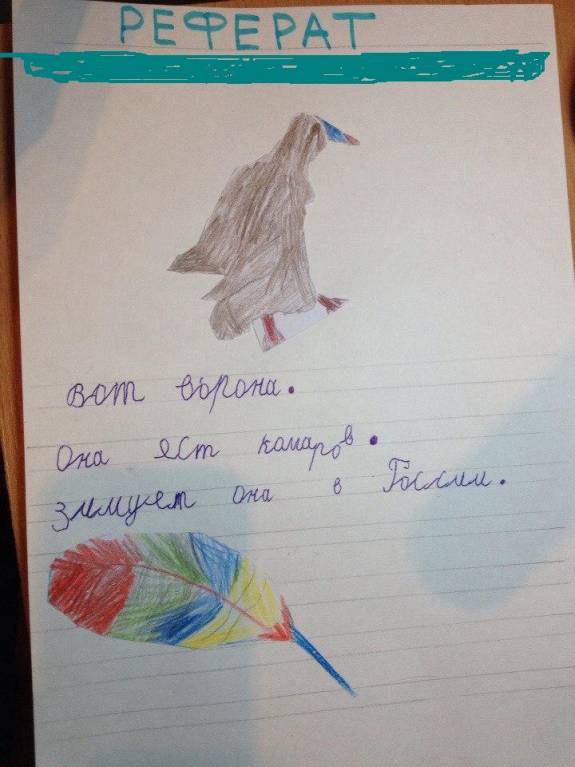 РЕФЕРАТ
вот ворона.
Она яст камаров.
зимует она в России.